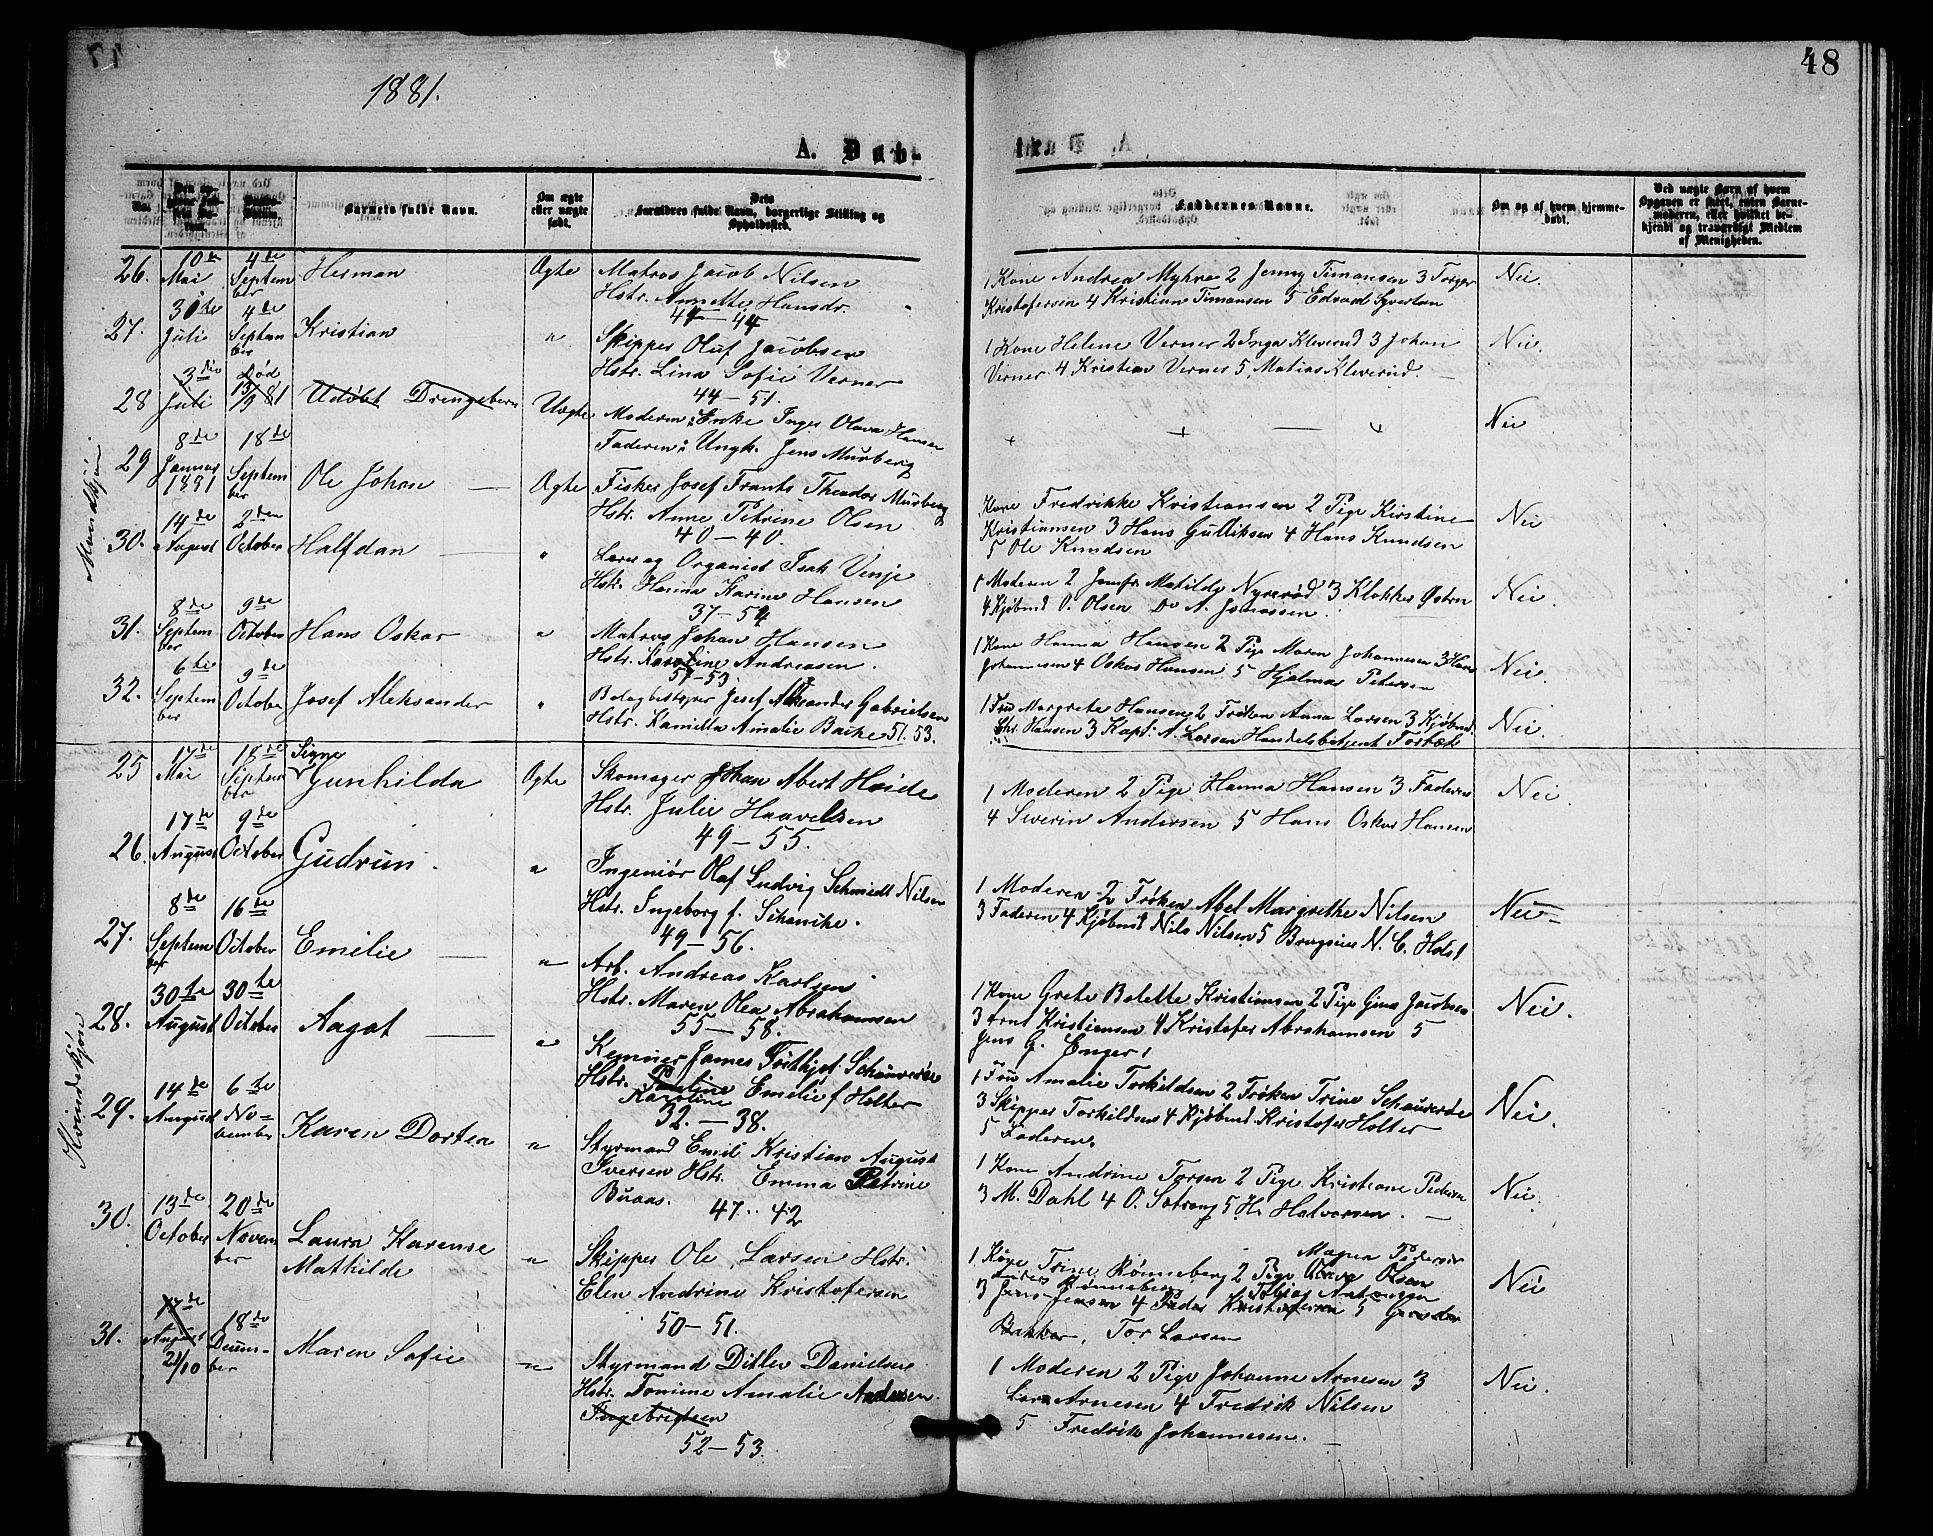 48
1881.
A. Døb-
No.
Barnets fulde Navn.
Om ægte eller uægte født.
Dets Forældres fulde Navn, borgerlige Stilling og Opholdssted.
Faddernes Navne.
Om og af hvem hjemmedøbt.
Ved uægte Børn af hvem Opgaven er skeet, enten Barnemoderen, eller hvilket bekjendt og troværdigt Medlem af Menigheden.
Mandkjøn
26. 10de Mai 4de September Herman Ægte Matros Jacob Nilsen
Hstr. Annette Hansdr.
44–44
1 Kone Andrea Myhre 2 Jenny Timansen 3 Torger
Kristofersen 4 Kristian Timansen 5 Edvard Syvertsen
Nei.
27. 30te Juli 4de September Kristian " Skipper Oluf Jacobsen
Hstr. Lina Sofie Verner
44–51.
1 Kone Helene Verner 2 Inga Kleverud 3 Johan
Verner 4 Kristian Verner 5, Matias Kleverud.
Nei.
28 3die Juli Død 13/9 81 Udøbt Drengebarn Uægte Moderen: Enke Inger Olava Hansen
Faderen: Ungk. Jens Murberg
Nei
29 8de Januar 1881 18de September Ole Johan Ægte Fisker Josef Frants Theodor Murberg
Hstr. Anne Petrine Olsen
40–40.
Kone Fredrikke Kristiansen 2 Pige Kirstine
Kristiansen 3 Hans Gulliksen 4 Hans Knudsen
5 Ole Knudsen
Nei
30. 14de August 2den October Halfdan " Lærer og Organist Isak Venje
Hstr. Hanna Karine Hansen
37–54
1 Moderen 2 Jomfr. Matilde Nyrerød 3 Klokker Østen
4 Kjøbmd O. Olsen Do A. Jonassen
Nei.
31. 8de September 9de October Hans Oskar " Matros Johan Hansen
Hstr. Karoline Andreasen.
57–53
1 Kone Hanna Hansen 2 Pige Maren Johannesen 3 Hans
Johannesen 4 Oskar Hansen 5 Hjalmar Petersen
Nei.
32. 6te September 9de October Josef Aleksander " Bolagbestyrer Josef Aleksander Gabrielsen
Hstr. Kamilla Amalie Backe 51.53.
1 Fru Margrete Hansen 2 Frøken Anna Larsen 3 Kjøbmd.
Chr. Hansen 3 Kapt: A. Larsen Handelsbetjent Forbæk
Nei.
Kvindekjøn
25 17de Mai 18de September Signe
Gunhilda Ægte Skomager Johan Abert Høide
Hstr. Julie Haavelsen
49–55.
1 Moderen 2 Pige Hanna Hansen 3 Faderen
4 Severin Andersen 5 Hans Oskar Hansen
Nei.
26. 17de August 9de October Gudrun. " Ingeniør Olaf Ludvig Schmidt Nilsen
Hstr. Ingeborg f. Schancke.
49–56.
1 Moderen 2 Frøken Abel Margrethe Nilsen
3 Faderen 4 Kjøbmd Nils Nilsen 5 Brugseier N. C. Holst
Nei
27. 8de September 16de October Emilie " Arb. Andreas Karlsen
Hstr. Maren Olea Abrahamsen
55–58.
1 Kone Grete Bolette Kristiansen 2 Pige Gina Jacobsen
3 Arnt Kristiansen 4 Kristofer Abrahamsen 5
Jens G. Enger.
Nei.
28. 30te August 30te October Aagot " Kemner James Frithjof Schauerde
Hstr. Pauline Karoline Emelie f Holter
32.–38.
1 Fru Amalie Torkildsen 2 Frøken Trine Schauerde
3 Skipper Torkildsen 4 Kjøbmd. Kristofer Holter
5 Faderen
Nei.
29. 14de August 6te November Karen Dortea " Styrmand Emil Kristian August
Iversen Hstr. Emma Petrine
Buaas. 47..42
1 Kone Andrine Torsen 2 Pige Kristiane Pedersen
3 M. Dahl 4 O. Sotrang 5 H. Halvorsen.
Nei.
30. 13de October 20de November Laura Karense
Mathilde " Skipper Ole Larsen Hstr.
Elen Andrine Kristofersen
50–51.
1 Kone Trine Rønneberg 2 Pige Olava Olsen Maren Pedersen
3 Jens Jensen 4 Peder Kristofersen 5
Bakker, Tor Larsen
Nei
31. 17de August 21/10 18de December Maren Sofie " Styrmand Ditlev Danielsen
Hstr. Tomine Amalie Andersen.
Ingebrigtsen
52–53.
1 Moderen 2 Pige Johanne Arnesen 3
Lars Arnesen 4 Fredrik Nilsen
5 Fredrik Johannesen.
Nei.